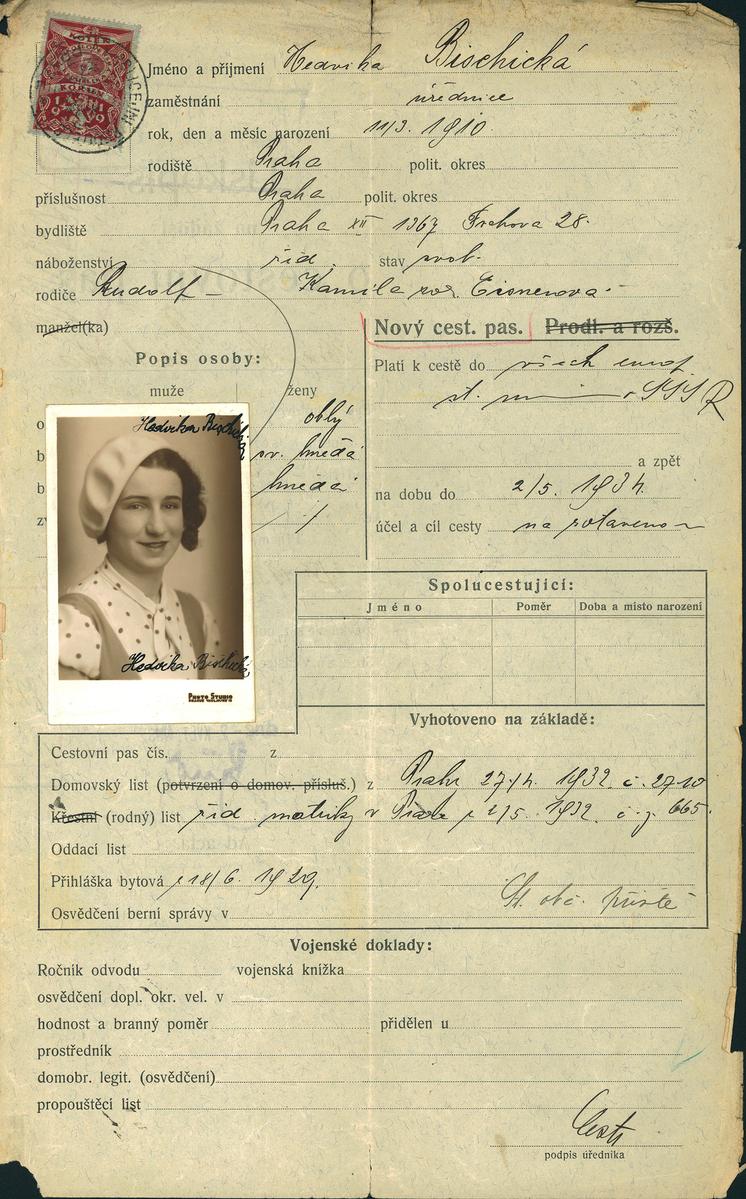 Jméno a příjmení Hedvika Bischická
zaměstnání úřednice
rok, den a měsíc narození 11/3. 1910.
rodiště Praha polit. okres
příslušnost Praha polit. okres
bydliště Praha XII 1367
náboženství žid. stav svob.
rodiče Rudolf – Kamila roz. Eisnerova
manžel(ka)
Nový cest. pas. Prodl. a rozš.
Popis osoby:
Platí k cestě do všech
muže ženy
oblý
sv. hnědá
a zpět
hnědá
na dobu do 2/5. 1934.
účel a cíl cesty na zotavenou
Hedvika Bischická
Hedvika Bischická
PHOTO STUDIO
Spolucestující:
Jméno Poměr Doba a místo narození
Vyhotoveno na základě:
Cestovní pas čís. z
Domovský list (potvrzení o domov. přísluš.) z Prahy 27/4. 1932 č. 2710
Křestní (rodný) list žid. matriky v Praze z 2/5. 1932 č. j. 665.
Oddací list
Přihláška bytová z 18/6. 1929.
Osvědčení berní správy v St. obč. příště
Vojenské doklady:
Ročník odvodu vojenská knížka
osvědčení dopl. okr. vel. v
hodnost a branný poměr přidělen u
prostředník
domobr. legit. (osvědčení)
propouštěcí list
podpis úředníka